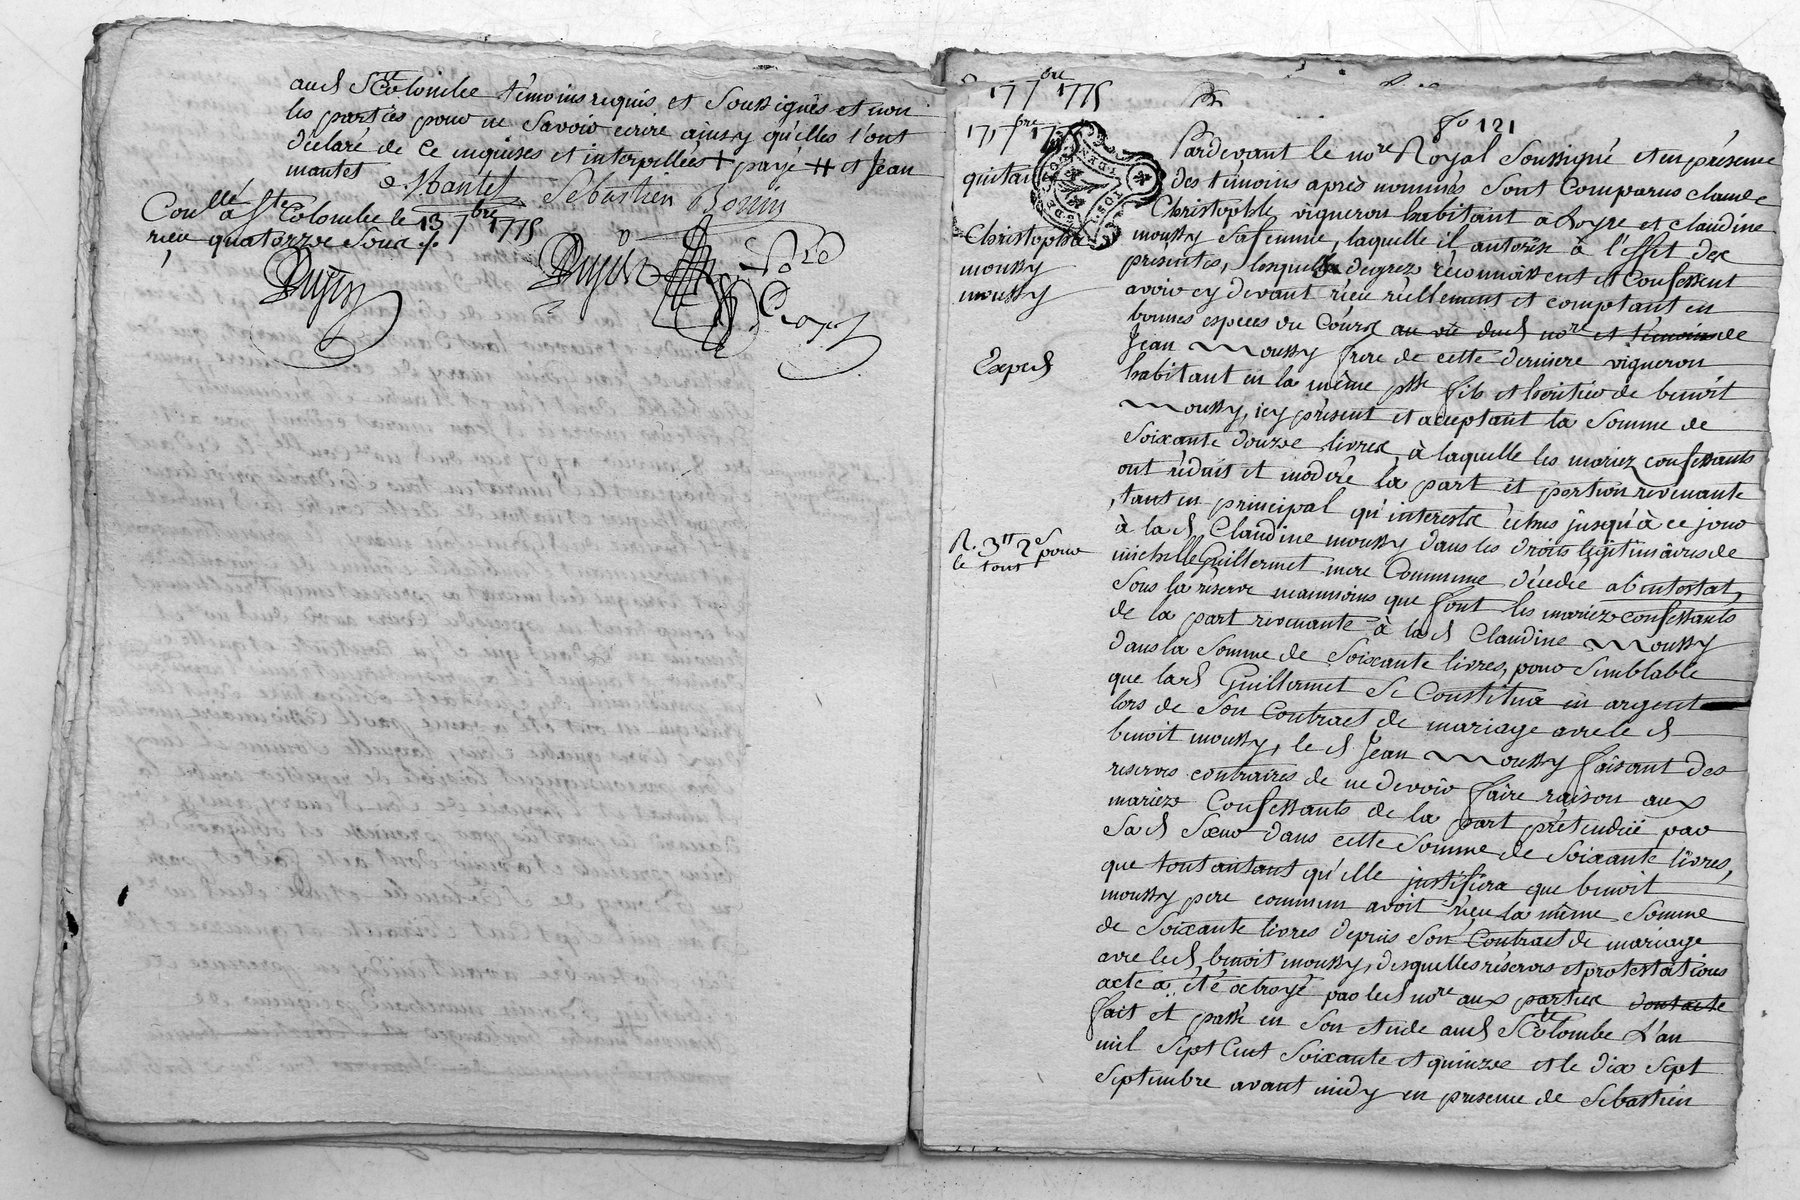 aud Ste Colombe témoins requis et soussignés et non
les parties pour ne savoir ecrire ainsy qu'elles l'ont
déclaré de ce enquises et interpellées + payé ++ et Jean
mantet
Mantet Sebastien Bonin
Conllé à Ste Colombe le 13 7bre 1775
reçu quatorze sous
17 7bre 1775
17 7bre
quitan
Christophle
moussy
moussy
Exped
R. 3tt 2s pour
le tout
fo 121
Pardevant le nore Royal soussigné et en présence
des témoins après nommés sont comparus claude
Christophle vigneron habitant a Loyse et claudine
moussy sa femme, laquelle il autorise à l'effet des
presentes, lesquels degrez réconnoissent et Confessent
avoir cy devant reçu réellement et comptant en
bonnes especes du Cours au vû dud nore et témoins de
Jean Moussy frere de cette derniere vigneron
habitant en la même psse fils et héritier de benoit
Moussy, icy présent et acceptant la somme de
soixante douze livres, à laquelle les mariez confessants
ont réduit et modéré la part et portion revenante
, tant en principal qu'interests échus jusqu'à ce jour
à lad Claudine moussy dans les droits légitimaires de
michelle Guillermet mere Commune décédée abintestat,
sous la réserve neanmoins que font les mariez confessants
de la part revenante à lad Claudine Moussy
dans la somme de soixante livres, pour semblable
que lad Guillermet se Constitua en argent
lors de son Contract de mariage avec led
benoit moussy, led Jean Moussy faisant des
reserves contraires de ne devoir faire raison aux
mariez Confessants de la part prétenduë par
sad sœur dans cette somme de soixante livres,
que tout autant qu'elle justifiera que benoit
moussy pere commun avoit reçu la même somme
de soixante livres depuis son Contract de mariage
avec led benoit moussy, desquelles réserves et protestations
acte a été octroyé par led nore aux parties dont acte
fait et passé en son etude aud Ste Colombe L'an
mil sept Cent soixante et quinze et le dix sept
septembre avant midy en presence de Sebastien